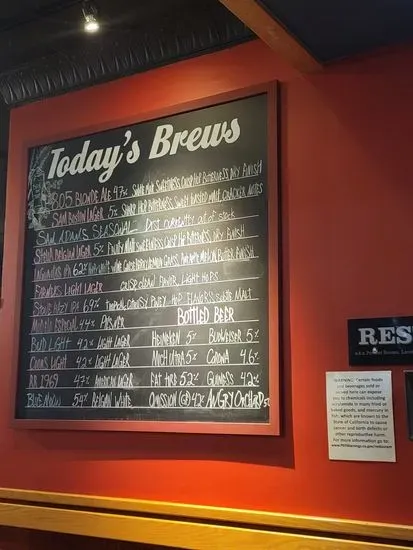 Today's Brews
805 BLONDE ALE 4.7% SOME MALT SWEETNESS CRISP HOP BITTERNESS, DRY FINISH
SAM BOSTON LAGER 5% SHARP HOP BITTERNESS, SWEET TOASTED MALT, CRACKER NOTES
SAM ADAMS SEASONAL - Dist. currently out of stock
STELLA ORIGINAL LAGER 5% FRUITY MALT SWEETNESS CRISP HOP BITTERNESS, DRY FINISH
LAGUNITAS IPA 6.2%
FIRESTONE LIGHT LAGER CRISP, CLEAN FLAVOR, LIGHT HOPS
STONE HAZY IPA 6.9% TROPICAL, CITRUSY, JUICY HOP FLAVORS, SUBTLE MALT
MODELO ESPECIAL 4.4% PILSNER BOTTLED BEER
BUD LIGHT 4.2% LIGHT LAGER HEINEKEN 5% BUDWEISER 5%
COORS LIGHT 4.2% LIGHT LAGER MICH ULTRA 5% CORONA 4.6%
AB 1969 4.7% AMERICAN LAGER FAT HRD 5.2% GUINESS 4.2%
BLUE MOON 5.4% BELGIAN WHITE OMISSION (GF) 4.2% ANGRY ORCHARD 5%
RES
WARNING: Certain foods
and beverages sold or
served here can expose
you to chemicals including
acrylamide in many fried or
baked goods, and mercury in
fish, which are known to the
State of California to cause
cancer and birth defects or
other reproductive harm.
For more information go to:
www.P65Warnings.ca.gov/restaurant